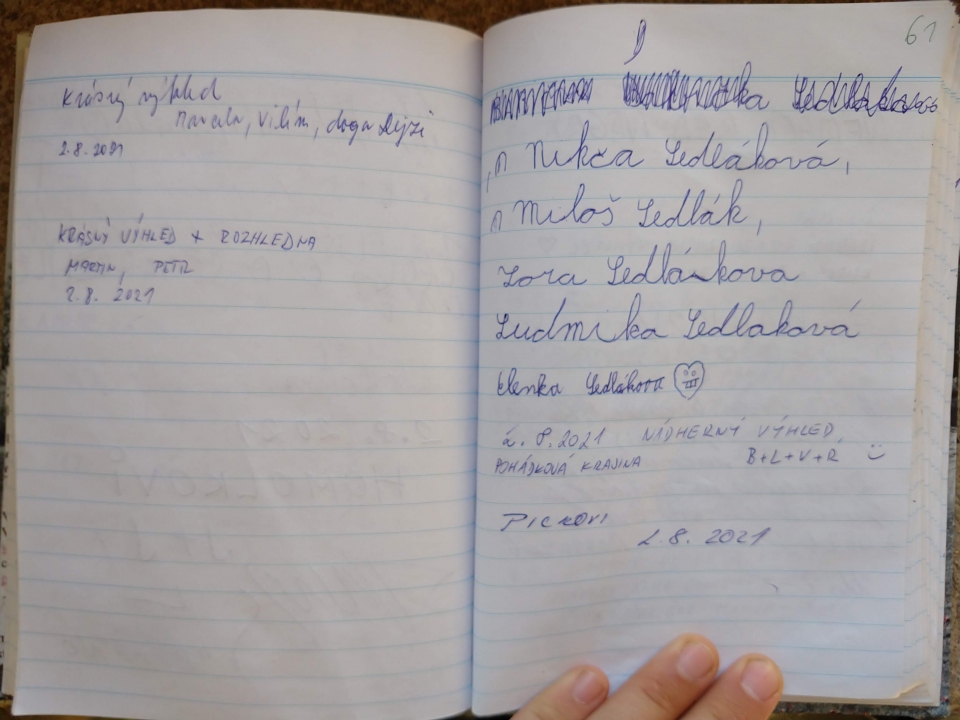 Krásný výhled
Marcela, Vilém, doga Dejzi
2.8.2021
KRÁSNÝ VÝHLED + ROZHLEDNA
MARTIN, PETR
2.8. 2021
61
Sedláková
, n Nikča Sedláková,
n Miloš Sedlák,
Lora Sedlákova
Ludmika Sedlaková
Elenka Sedlákova
2. 8. 2021 NÁDHERNÝ VÝHLED,
POHÁDKOVÁ KRAJINA B+L+V+R
PICKOVI
2.8. 2021